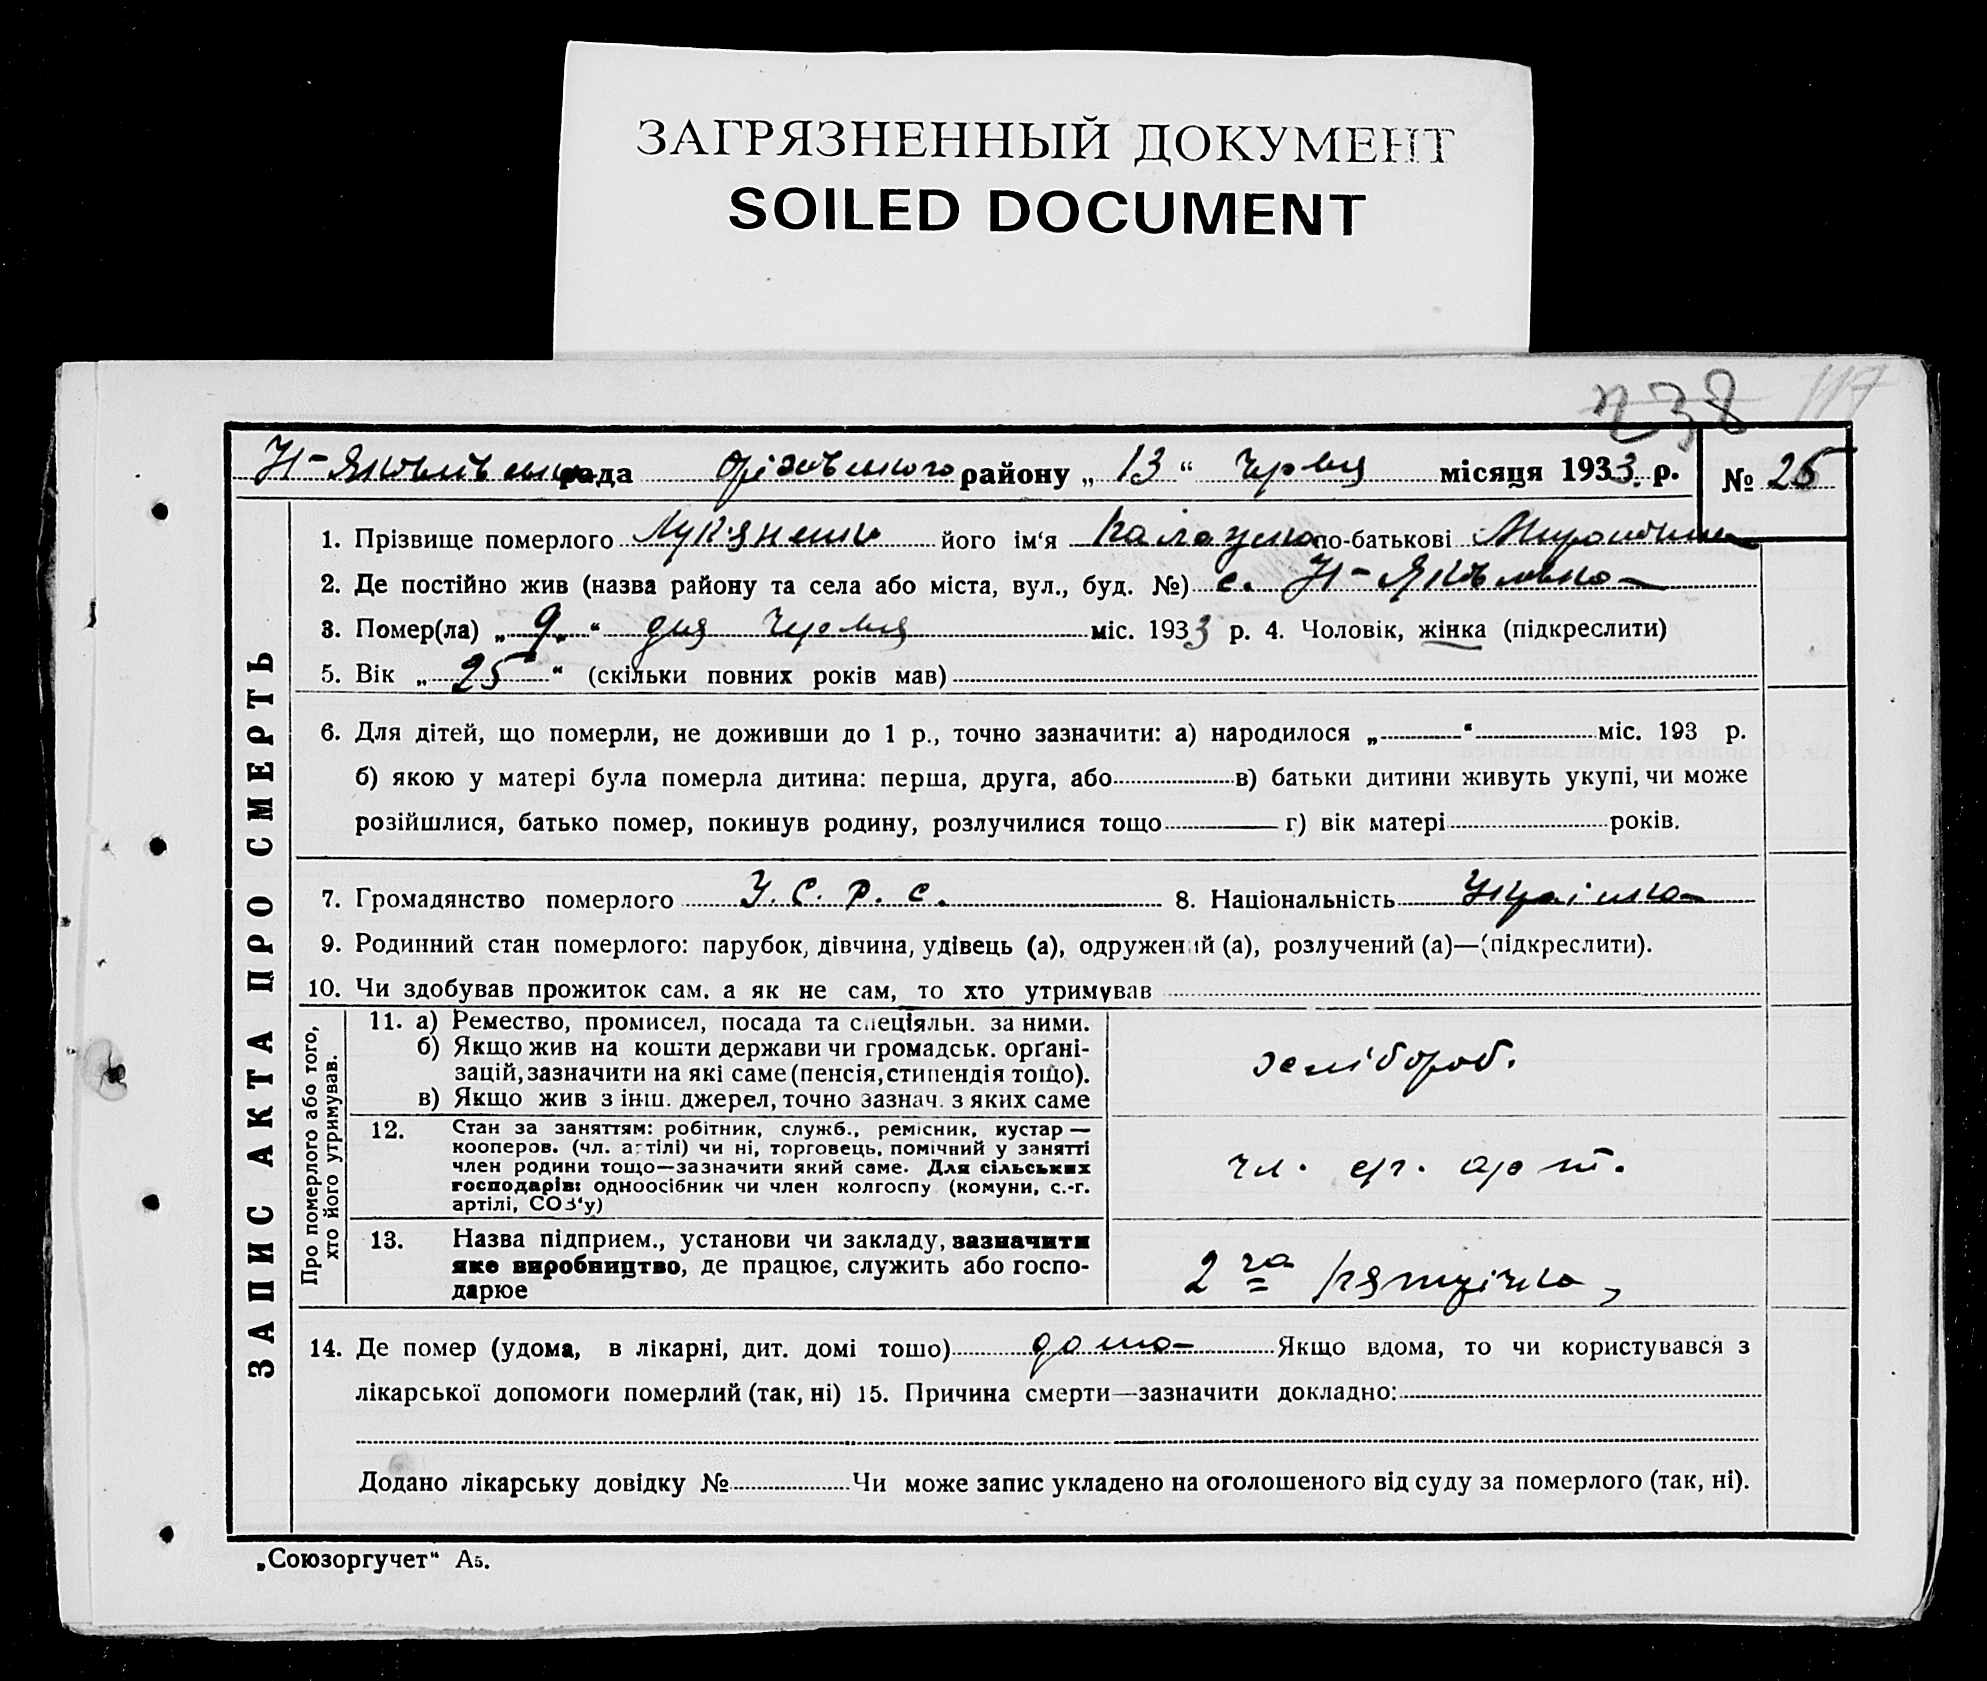 ЗАГРЯЗНЕННЫЙ ДОКУМЕНТ
SOILED DOCUMENT
238 117
Н-Яковлівська рада Оріхівського району „ 13 “ Червця місяця 1933. р. № 25
ЗАПИС АКТА ПРО СМЕРТЬ
1. Прізвище померлого Лукяненко його ім‘я по-батькові
2. Де постійно жив (назва району та села або міста, вул., буд. №) с. Н-Яковлівка
3. Помер(ла) „ 9 “ дня Червця міс. 1933 р. 4. Чоловік, жінка (підкреслити)
5. Вік „ 25 “ (скільки повних років мав)
6. Для дітей, що померли, не доживши до 1 р., точно зазначити: а) народилося „ “ міс. 193 р.
б) якою у матері була померла дитина: перша, друга, або в) батьки дитини живуть укупі, чи може
розійшлися, батько помер, покинув родину, розлучилися тощо г) вік матері років.
7. Громадянство померлого У.С.Р.С. 8. Національність Українка
9. Родинний стан померлого: парубок, дівчина, удівець (а), одружений (а), розлучений (а)—(підкреслити).
10. Чи здобував прожиток сам, а як не сам, то хто утримував
Про померлого або того,
хто його утримував.
11. а) Ремество, промисел, посада та спеціяльн. за ними.
б) Якщо жив на кошти держави чи громадськ. орґані-
зацій, зазначити на які саме (пенсія, стипендія тощо).
в) Якщо жив з інш. джерел, точно зазнач. з яких саме
хлібороб.
12. Стан за заняттям: робітник, служб., ремісник, кустар —
кооперов. (чл. артілі) чи ні, торговець, помічний у занятті
член родини тощо—зазначити який саме. Для сільських
господарів: одноосібник чи член колгоспу (комуни, с.-г.
артілі, СОЗ‘у)
чл. с/г. арт.
13. Назва підприєм., установи чи закладу, зазначити
яке виробництво, де працює, служить або госпо-
дарює
2га пятирічка,
14. Де помер (удома, в лікарні, дит. домі тощо) дома Якщо вдома, то чи користувався з
лікарської допомоги померлий (так, ні) 15. Причина смерти—зазначити докладно:
Додано лікарську довідку № Чи може запис укладено на оголошеного від суду за померлого (так, ні).
„Союзоргучет“ А5.